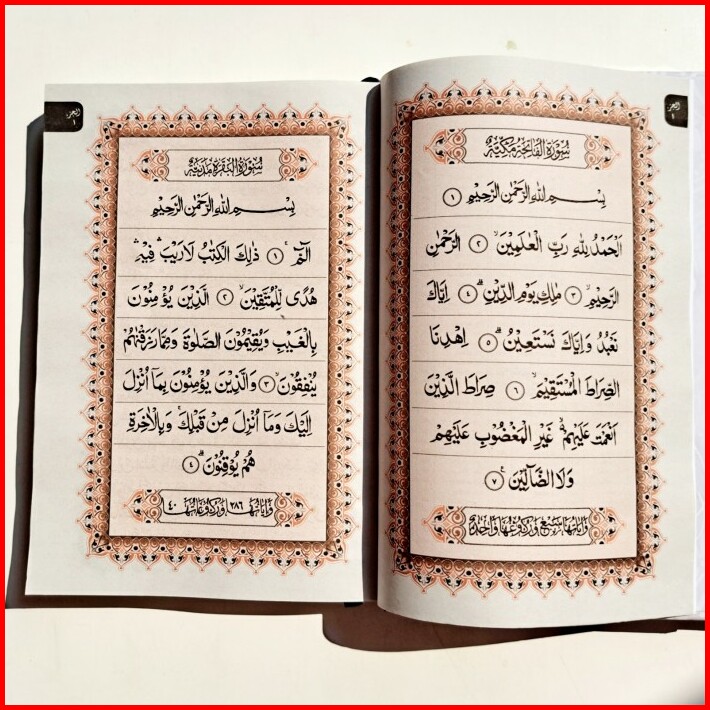 الجزء
١
سُوْرَةُ الْفَاتِحَةِ مَكِّيَّةٌ
بِسْمِ اللهِ الرَّحْمٰنِ الرَّحِيْمِ ۝١
اَلْحَمْدُ لِلهِ رَبِّ الْعٰلَمِيْنَۙ ۝٢ الرَّحْمٰنِ
الرَّحِيْمِۙ ۝٣ مٰلِكِ يَوْمِ الدِّيْنِۗ ۝٤ اِيَّاكَ
نَعْبُدُ وَاِيَّاكَ نَسْتَعِيْنُۗ ۝٥ اِهْدِنَا
الصِّرَاطَ الْمُسْتَقِيْمَۙ ۝٦ صِرَاطَ الَّذِيْنَ
اَنْعَمْتَ عَلَيْهِمْ ۙ غَيْرِ الْمَغْضُوْبِ عَلَيْهِمْ
وَلَا الضَّاۤلِّيْنَࣖ ۝٧
وَاٰيَاتُهَا سَبْعٌ وَرُكُوْعُهَا وَاحِدَةٌ
الجزء
١
سُوْرَةُ الْبَقَرَةِ مَدَنِيَّةٌ
بِسْمِ اللهِ الرَّحْمٰنِ الرَّحِيْمِ
الۤمّۤۚ ۝١ ذٰلِكَ الْكِتٰبُ لَا رَيْبَۛ فِيْهِۛ
هُدًى لِّلْمُتَّقِيْنَۙ ۝٢ الَّذِيْنَ يُؤْمِنُوْنَ
بِالْغَيْبِ وَيُقِيْمُوْنَ الصَّلٰوةَ وَمِمَّا رَزَقْنٰهُمْ
يُنْفِقُوْنَۙ ۝٣ وَالَّذِيْنَ يُؤْمِنُوْنَ بِمَآ اُنْزِلَ
اِلَيْكَ وَمَآ اُنْزِلَ مِنْ قَبْلِكَۚ وَبِالْاٰخِرَةِ
هُمْ يُوْقِنُوْنَۗ ۝٤
وَاٰيَاتُهَا ٢٨٦ وَرُكُوْعَاتُهَا ٤٠